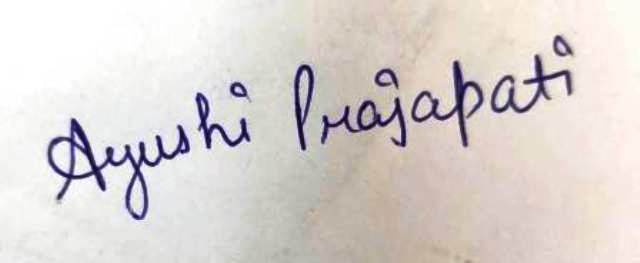 Ayushi Prajapati